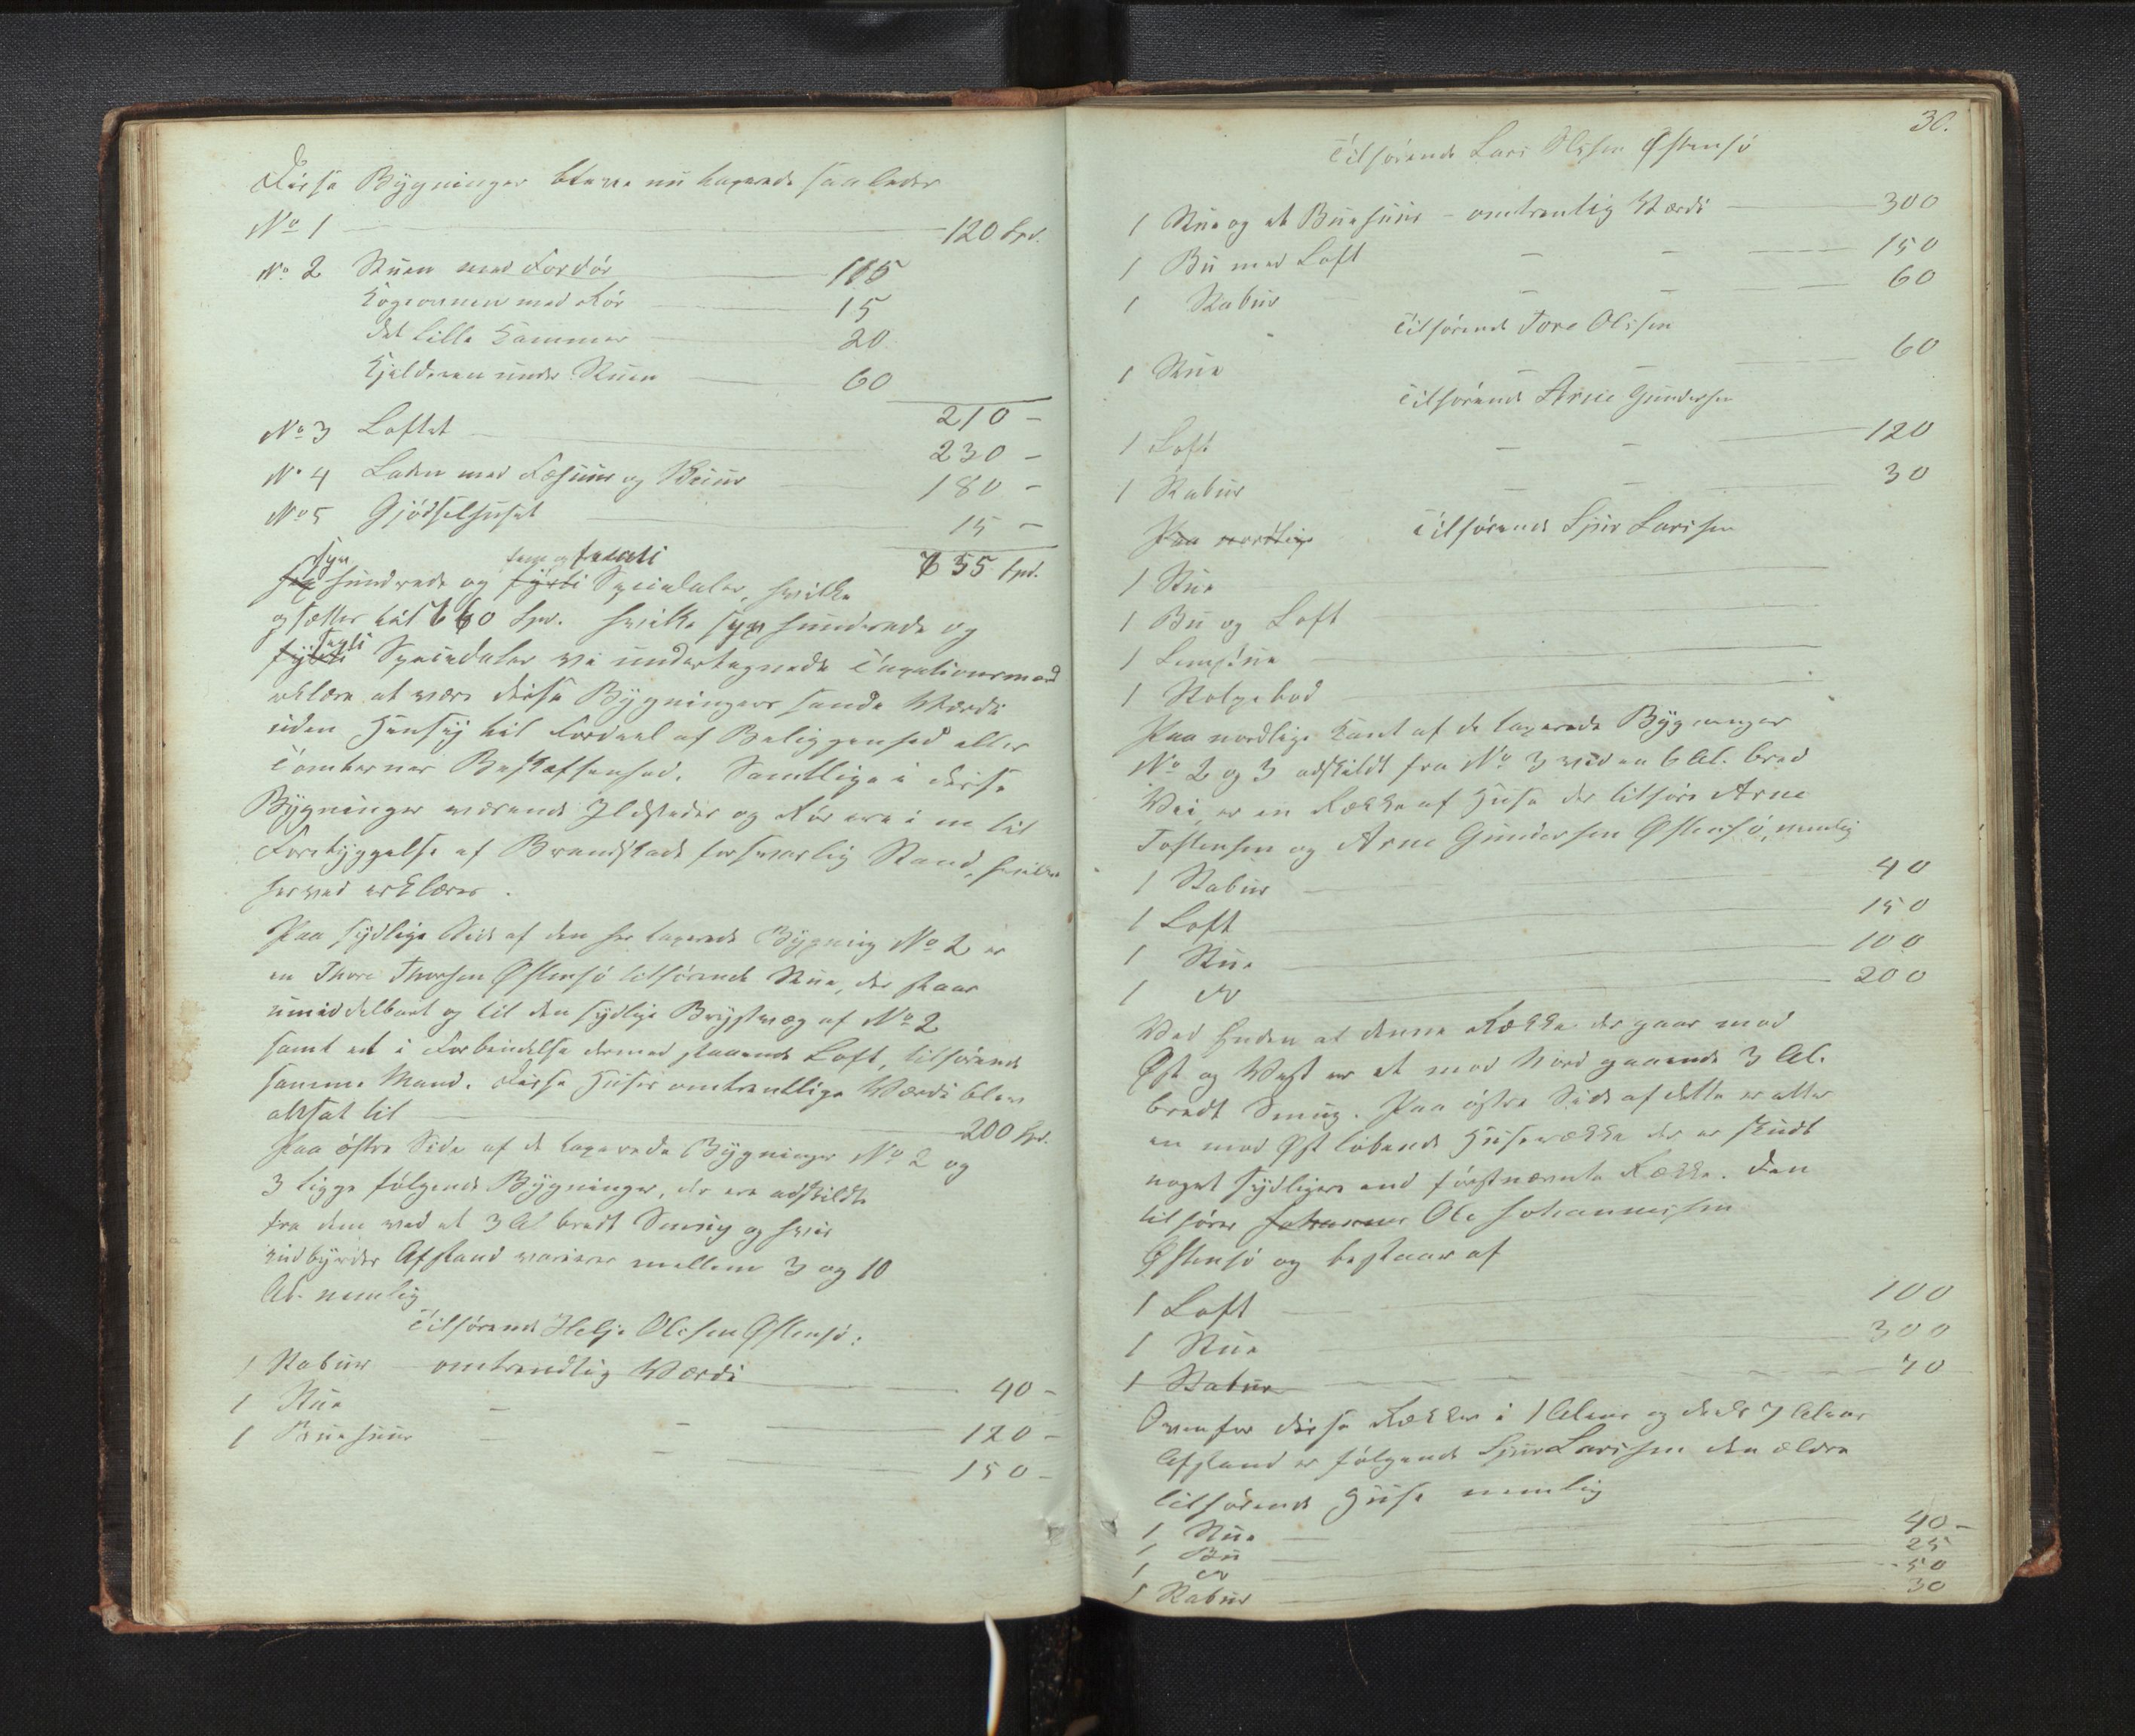 Disse Bygninger bleve nu taxerede saaledes
No 1 — 120 Spd.
No 2 Stuen med Fordør — 115
Kogeovnen med Rør — 15
det lille Kammer — 20
Kjelderen under Stuen — 60
210 -
No 3 Loftet — 230 -
No 4 Laden med Fæhuus og Skuur — 180 -
No 5 Gjødselhuset — 15 -
755 Spd.
syv fem og femti
sex hundrede og fyrti Speciedaler, hvilke
opsættes til 760 Spd. hvilke syv hundrede og
sexti
fyrti Speciedaler vi undertegnede Taxationsmænd
erklære at være disse Bygningers sande Værdi
uden Hensyn til Fordeel af Beliggenhed eller
Tomternes Beskaffenhed. Samtlige i disse
Bygninger værende Ildsteder og Rør ere i en til
Forebyggelse af Brandskade forsvarlig Stand, hvilket
herved erklæres.
Paa sydlige Side af den her taxerede Bygning No 2 er
en Thore Thorsen Østensø tilhørende Stue, der staar
umiddelbart op til den sydlige Brystvæg af No 2
samt et i Forbindelse dermed staaende Loft, tilhørende
samme Mand. Disse Huses omtrentlige Værdi blev
ansat til — 200 Spd.
Paa østre Side af de taxerede Bygninger No 2 og
3 ligge følgende Bygninger, der ere adskildte
fra dem ved et 3 Al bredt Smug og hvis
indbyrdes Afstand varierer mellem 3 og 10
Al. nemlig
Tilhørende Helje Olsen Østensø:
1 Stabur omtrendtlig Værdi — 40 -
1 Stue - - — 120 -
1 Buehuus - - — 150 -
30.
Tilhørende Lars Olsen Østensø
1 Stue og et Buehuus - omtrentlig Værdi — 300
1 Bu med Loft - - — 150
1 Stabur - - — 60
Tilhørende Tore Olssen
1 Stue - — 60
Tilhørende Arne Gundersen
1 Loft - - — 120
1 Stabur - - — 30
Paa nordlige Tilhørende Sjur Larssen
1 Stue —
1 Bu og Loft —
1 —
1 Stolpebod —
Paa nordlige Kant af de taxerede Bygninger
No 2 og 3 adskildt fra No 3 ved en 6 Al. bred
Vei, er en Række af Huse der tilhøre Arne
Tostensen og Arne Gundersen Østensø, nemlig
1 Stabur — 40
1 Loft — 150
1 Stue — 100
1 do — 200
Ved Enden af denne Række der gaar mod
Øst og Vest er et mod Nord gaaende 3 Al.
bredt Smug. Paa østre Side af dette er atter
en mod Øst løbende Huserække der er skudt
noget sydligere end førstnævnte Række. Den
tilhører Johannes Ole Johannessen
Østensø og bestaar af
1 Loft — 100
1 Stue — 300
1 Stabur — 70
Ovenfor disse Rækker i 1 Alens og deels 7 Alens
Afstand er følgende Sjur Larssen den ældre
tilhørende Huse nemlig
1 Stue — 40 -
1 Bu — 25
1 do — 50
1 Stabur — 30